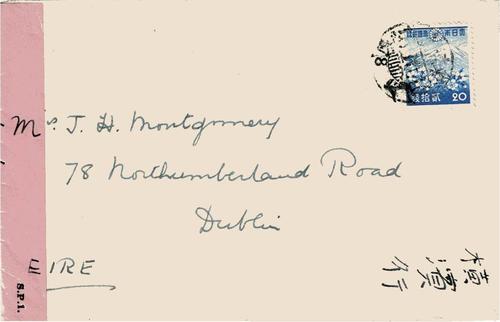 便郵國帝本日大
錢拾貳 20
Mrs. J. H. Montgomery
78 Northumberland Road
Dublin
EIRE
S.P.1.
横濱行